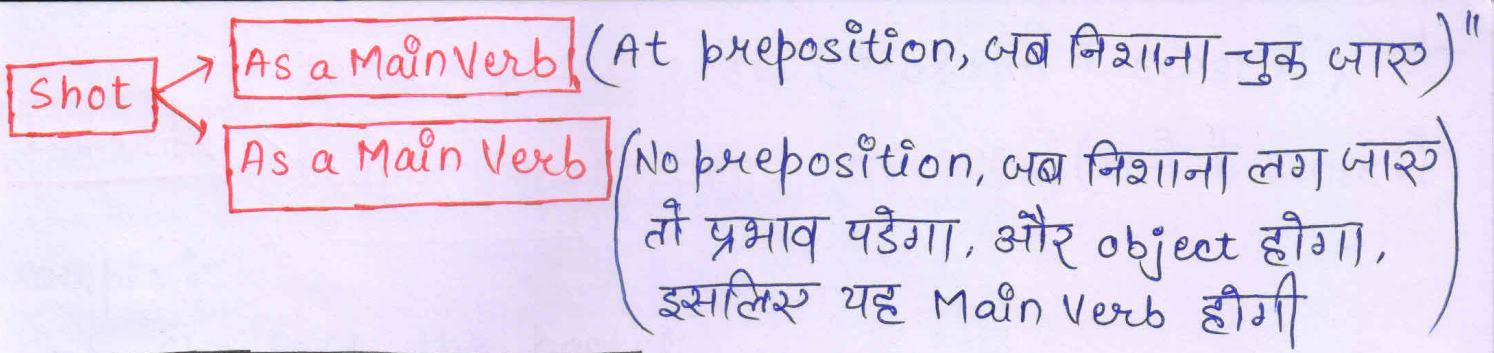 Shot
As a Main Verb (At preposition, जब निशाना चुक जाए)"
As a Main Verb (No preposition, जब निशाना लग जाए
तो प्रभाव पडेगा, और object होगा,
इसलिए यह Main Verb होगी)